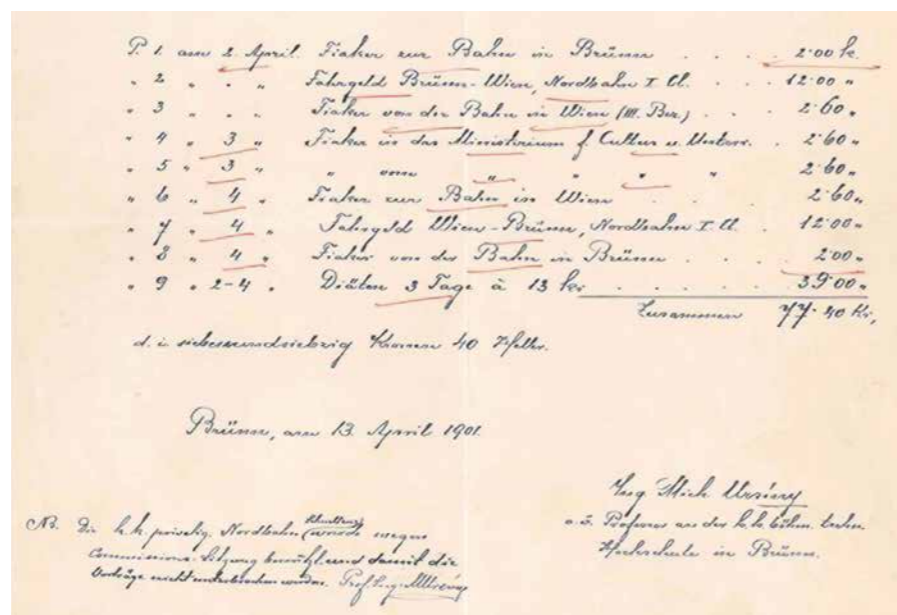 P. 1. am 2. April. Fiaker zur Bahn in Brünn . . . 2·00 k.
" 2 " " " Fahrgeld Brünn-Wien, Nordbahn I Cl. . . . 12·00 "
" 3 " " " Fiaker von der Bahn in Wien (III. Bez.) . . . 2·60 "
" 4 " 3 " Fiaker in das Ministerium f. Cultus u. Unterr. . 2·60 "
" 5 " 3 " " vom " " " 2·60 "
" 6 " 4 " Fiaker zur Bahn in Wien . . . 2·60 "
" 7 " 4 " Fahrgeld Wien-Brünn, Nordbahn I Cl. 12·00 "
" 8 " 4 " Fiaker von der Bahn in Brünn . . . . 2·00 "
" 9 " 2-4 " Diäten 3 Tage à 13 kr . . . . . 39·00 "
Zusammen 77·40 Kr,
d. i. siebenundsiebzig Kronen 40 Heller.
Brünn, am 13. April 1901.
Ing. Mich. Ursíny
o. ö. Professor an der k. k. böhm. techn.
Hochschule in Brünn.
NB. Die k. k. privileg. Nordbahn wurde wegen
Commissions-Sitzung benützt und damit die
Vorträge nicht unterbrochen werden. Prof. Ing. MUrsíny